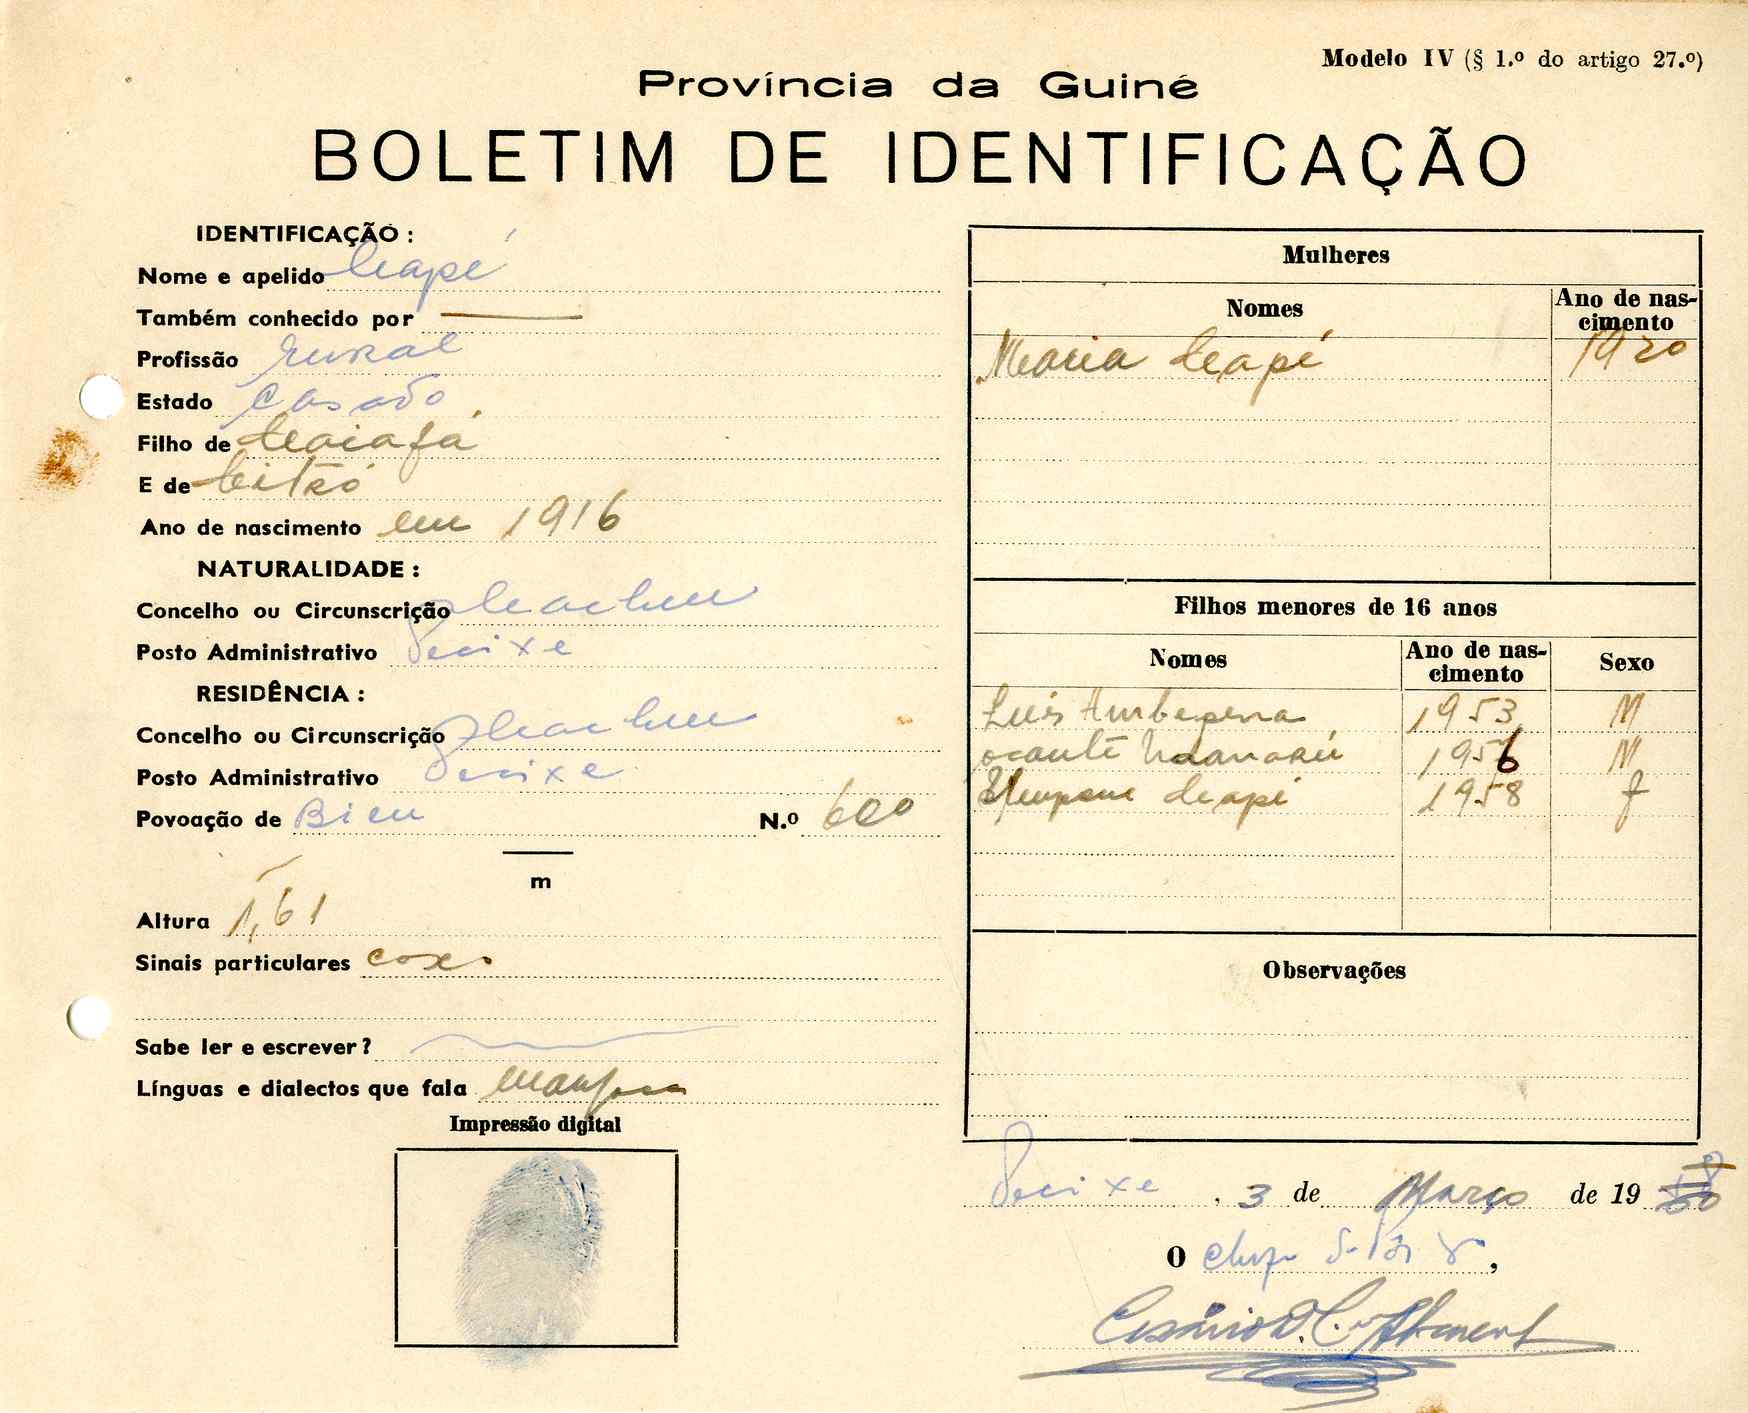 Modelo IV (§ 1.º do artigo 27.º)
Província da Guiné
BOLETIM DE IDENTIFICAÇÃO
IDENTIFICAÇÃO :
Nome e apelido
Também conhecido por —
Profissão rural
Estado casado
Filho de
E de
Ano de nascimento em 1916
NATURALIDADE :
Concelho ou Circunscrição
Posto Administrativo Pecixe
RESIDÊNCIA :
Concelho ou Circunscrição
Posto Administrativo Pecixe
Povoação de N.º 600
m
Altura 1,61
Sinais particulares coxo
Sabe ler e escrever?
Línguas e dialectos que fala
Impressão digital
Mulheres
Nomes Ano de nas-
cimento
Maria 1920
Filhos menores de 16 anos
Nomes Ano de nas-
cimento Sexo
Luís 1953 M
1956 M
1958 f
Observações
Pecixe, 3 de Março de 19
O chefe do Posto,